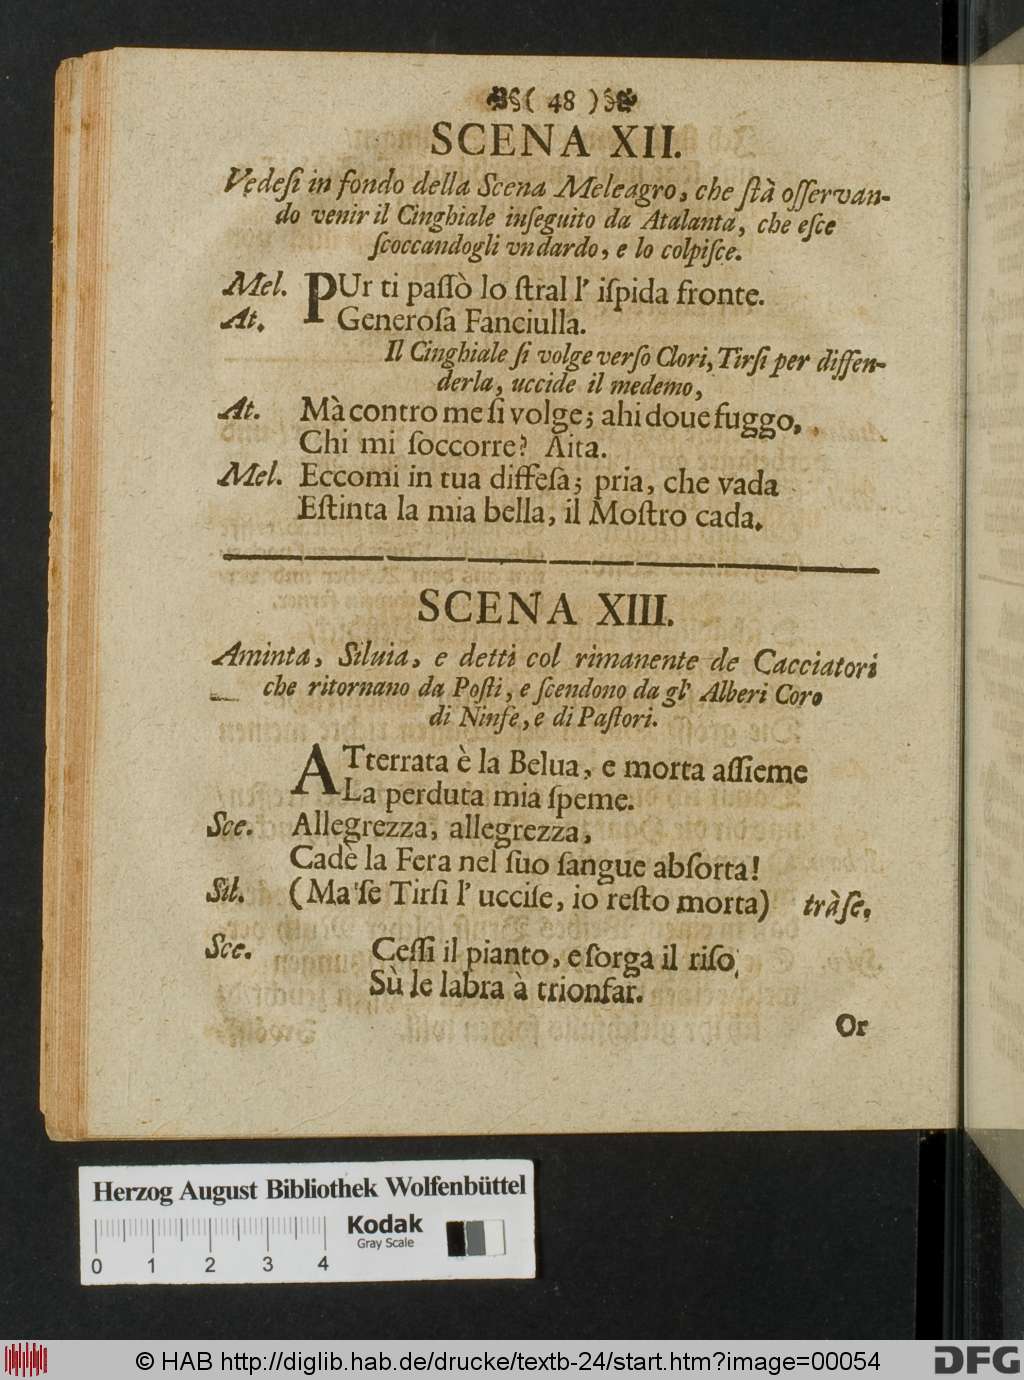 ( 48 )
SCENA XII.
Vedeſi in fondo della Scena Meleagro, che ſtà oſſervan-
do venir il Cinghiale inſeguito da Atalanta, che eſce
ſcoccandogli vn dardo, e lo colpiſce.
Mel. PUr ti paſſò lo ſtral l' iſpida fronte.
At. Generoſa Fanciulla.
Il Cinghiale ſi volge verſo Clori, Tirſi per diffen-
derla, uccide il medemo,
At. Mà contro me ſi volge; ahi doue fuggo,
Chi mi ſoccorre? Aita.
Mel. Eccomi in tua diffeſa; pria, che vada
Eſtinta la mia bella, il Moſtro cada.
SCENA XIII.
Aminta, Siluia, e detti col rimanente de Cacciatori
che ritornano da Poſti, e ſcendono da gl' Alberi Coro
di Ninfe, e di Paſtori.
ATterrata è la Belua, e morta aſſieme
La perduta mia ſpeme.
Sce. Allegrezza, allegrezza,
Cadè la Fera nel ſuo ſangue abſorta!
Sil. (Ma ſe Tirſi l' ucciſe, io reſto morta) trà ſe.
Sce. Ceſſi il pianto, e ſorga il riſo,
Sù le labra à trionfar.
Or
Herzog August Bibliothek Wolfenbüttel
Kodak
Gray Scale
0 1 2 3 4
© HAB http://diglib.hab.de/drucke/textb-24/start.htm?image=00054
DFG